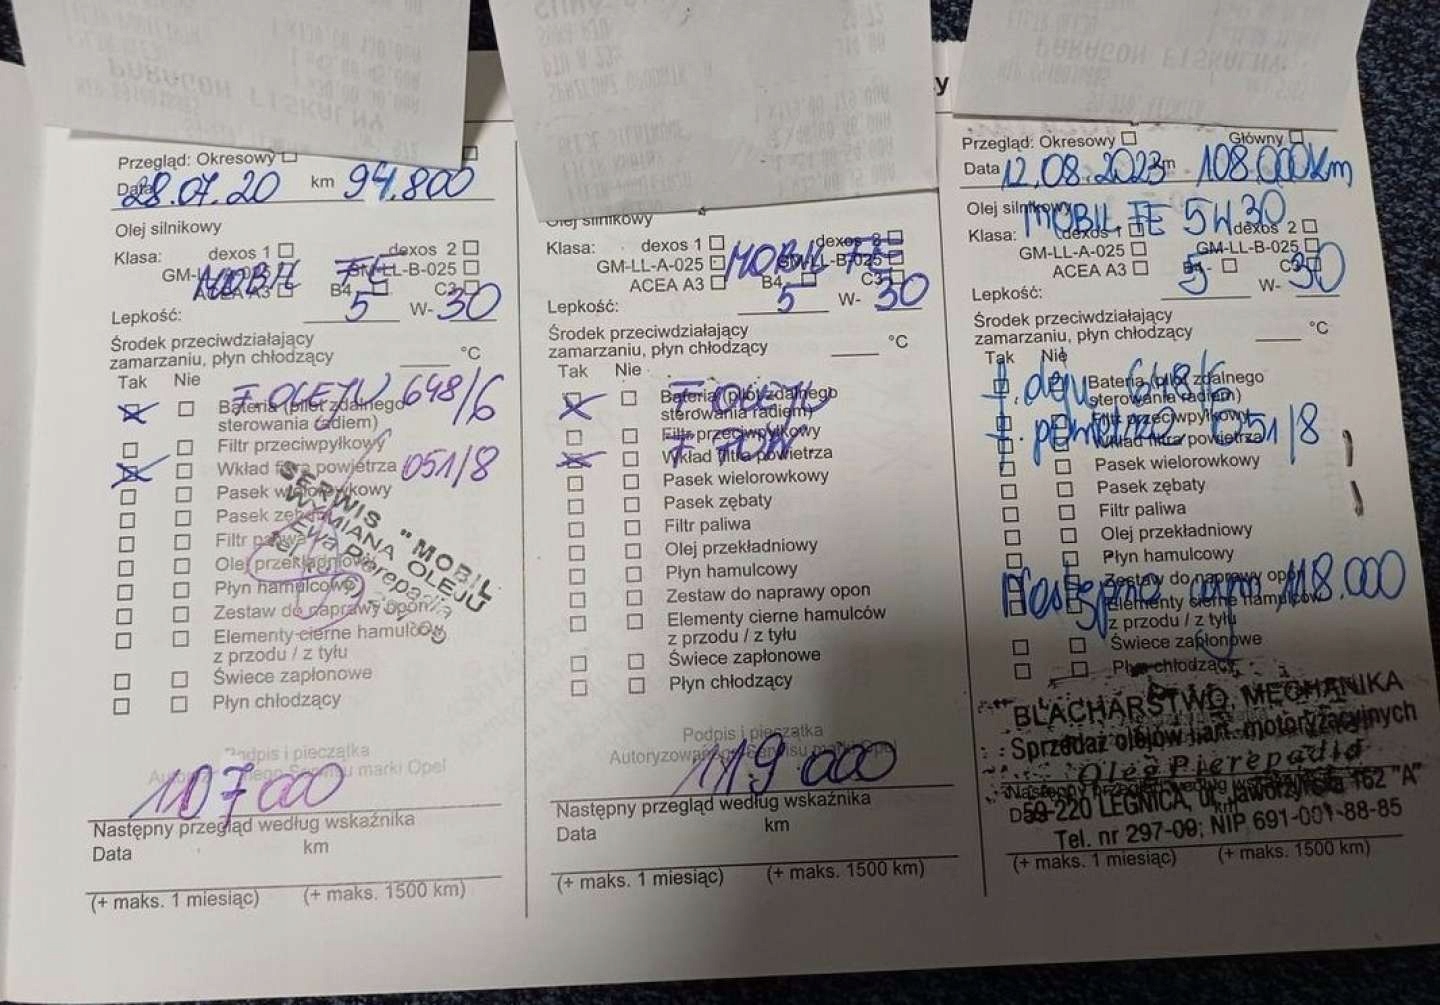 PARAGON FISKALNY
PARAGON FISKALNY
y
Przegląd: Okresowy
Data 28.07.20 km 94.800
Olej silnikowy
Klasa: dexos 1 dexos 2
GM-LL-A-025 GM-LL-B-025
MOBIL FE
ACEA A3 B4 C3
Lepkość: 5 W-30
Środek przeciwdziałający
zamarzaniu, płyn chłodzący °C
Tak Nie
F. OLEJU 648/6
Bateria (pilot zdalnego
sterowania radiem)
Filtr przeciwpyłkowy
Wkład filtra powietrza 051/8
Pasek wielorowkowy
Pasek zębaty
Filtr paliwa
Olej przekładniowy
Płyn hamulcowy
Zestaw do naprawy opon
Elementy cierne hamulców
z przodu / z tyłu
Świece zapłonowe
Płyn chłodzący
SERWIS "MOBIL
WYMIANA OLEJU
Ewa Pierepadia
Podpis i pieczątka
Autoryzowanego Serwisu marki Opel
107000
Następny przegląd według wskaźnika
Data km
(+ maks. 1 miesiąc) (+ maks. 1500 km)
Olej silnikowy
Klasa: dexos 1 dexos 2
MOBIL FE
GM-LL-A-025 GM-LL-B-025
ACEA A3 B4 C3
Lepkość: 5 W-30
Środek przeciwdziałający
zamarzaniu, płyn chłodzący °C
Tak Nie
F. OLEJU
Bateria (pilot zdalnego
sterowania radiem)
Filtr przeciwpyłkowy
F POW
Wkład filtra powietrza
Pasek wielorowkowy
Pasek zębaty
Filtr paliwa
Olej przekładniowy
Płyn hamulcowy
Zestaw do naprawy opon
Elementy cierne hamulców
z przodu / z tyłu
Świece zapłonowe
Płyn chłodzący
Podpis i pieczątka
Autoryzowanego Serwisu marki Opel
119 000
Następny przegląd według wskaźnika
Data km
(+ maks. 1 miesiąc) (+ maks. 1500 km)
Przegląd: Okresowy Główny
Data 12.08.2023 km 108.000km
Olej silnikowy
MOBIL FE 5W30
Klasa: dexos 1 dexos 2
GM-LL-A-025 GM-LL-B-025
ACEA A3 B4 C3
Lepkość: 5 W-30
Środek przeciwdziałający
zamarzaniu, płyn chłodzący °C
Tak Nie
f. oleju 648/6
Bateria (pilot zdalnego
sterowania radiem)
Filtr przeciwpyłkowy
f. powietrza 051/8
Wkład filtra powietrza
Pasek wielorowkowy
Pasek zębaty
Filtr paliwa
Olej przekładniowy
Płyn hamulcowy
Zestaw do naprawy opon
Następna 118.000
Elementy cierne hamulców
z przodu / z tyłu
Świece zapłonowe
Płyn chłodzący
BLACHARSTWO, MECHANIKA
Sprzedaż olejów i art. motoryzacyjnych
Oleg Pierepadia
Następny przegląd według wskaźnika
59-220 LEGNICA, ul. Jaworzyńska 162 "A"
Tel. nr 297-09; NIP 691-001-88-85
(+ maks. 1 miesiąc) (+ maks. 1500 km)